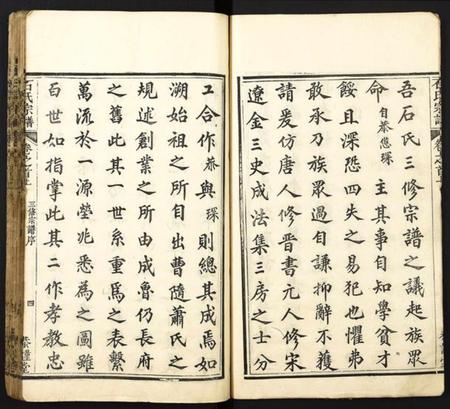 吾石氏三修宗譜之議起族眾
命自恭懲琛主其事自知學貧才
餒且深恐四失之易犯也懼弗
敢承乃族眾過自謙抑辭不獲
請爰仿唐人修晉書元人修宋
遼金三史成法集三房之士分
石氏宗譜
卷之首上
工合作恭與琛則總其成焉如
溯始祖之所自出曹隨蕭氏之
規述創業之所由成魯仍長府
之舊此其一世系重爲之表繫
萬流於一源塋兆悉爲之圖雖
百世如指掌此其二作孝教忠
石氏宗譜
卷之首上
三修宗譜序
四